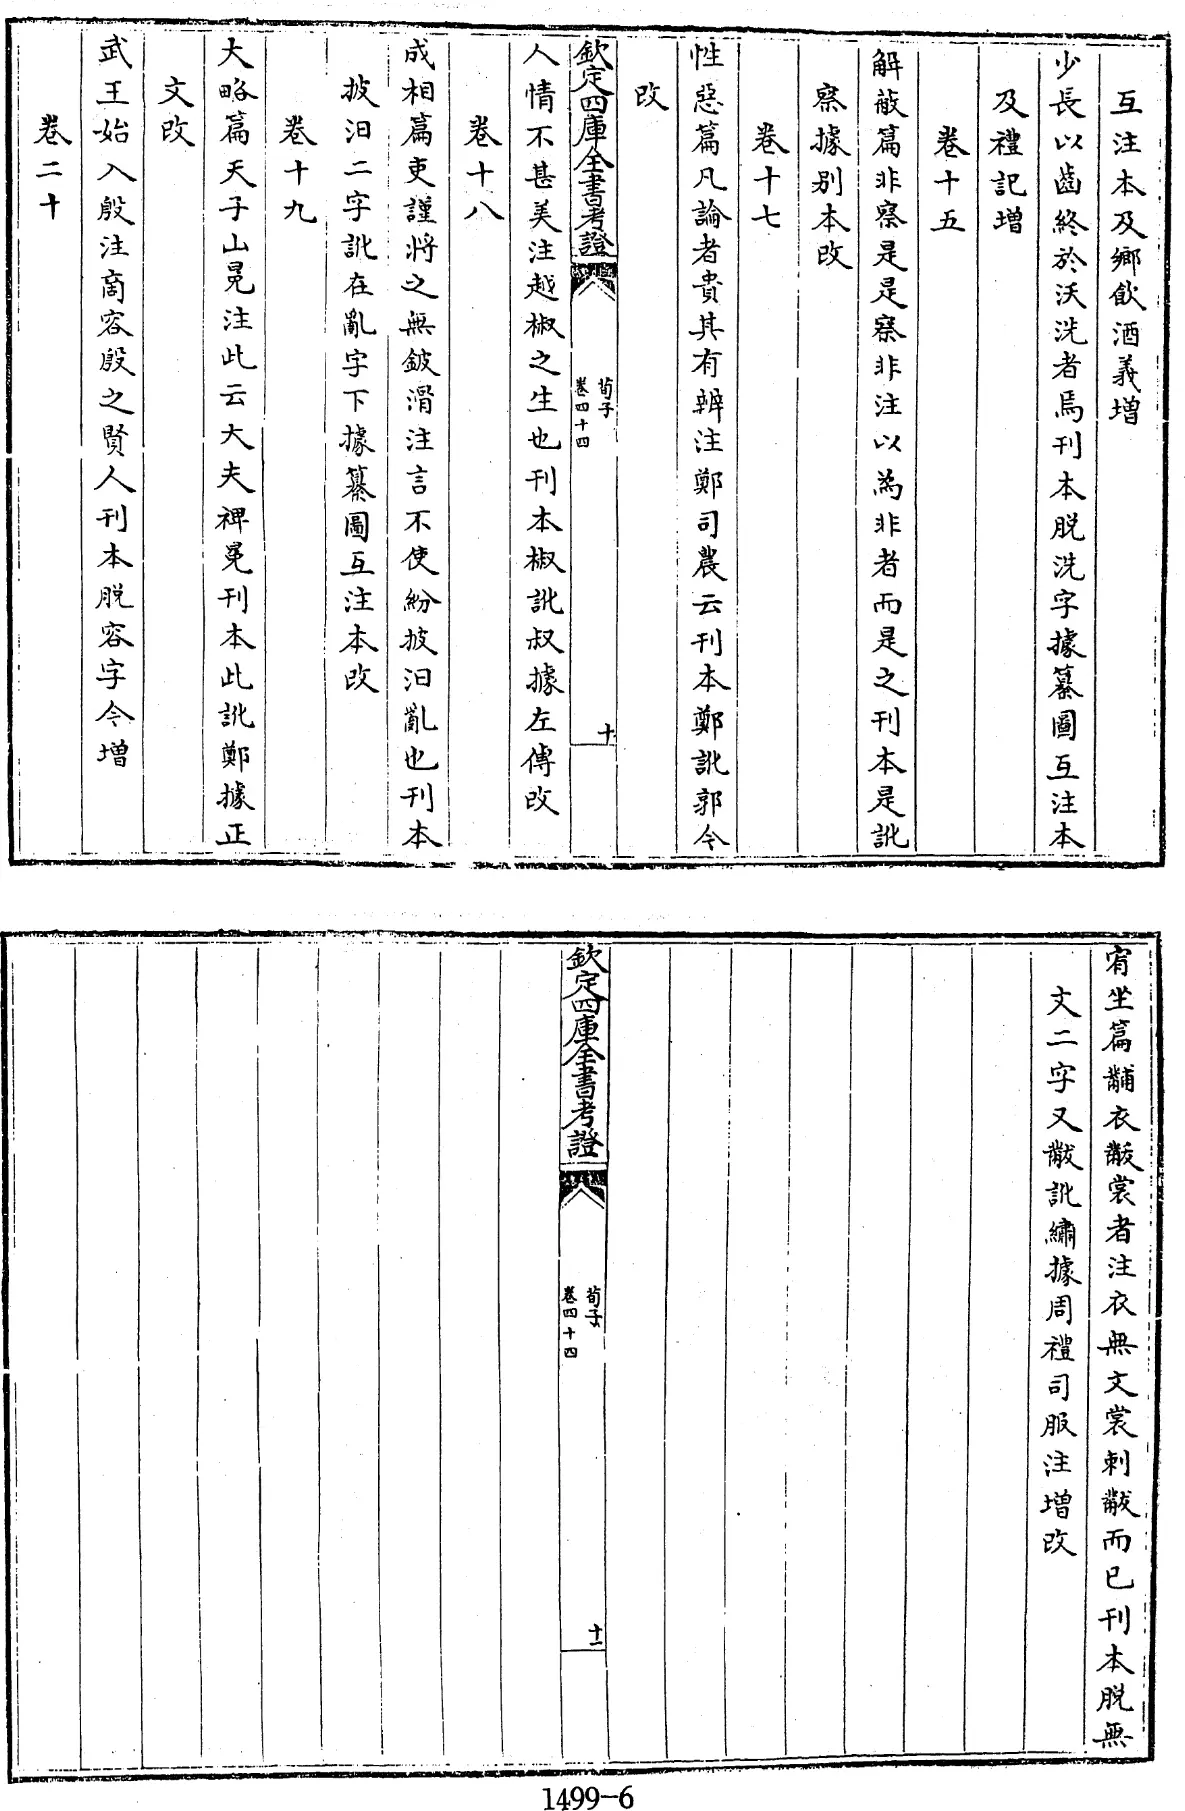 互注本及鄉飲酒義增
少長以齒終於沃洗者焉刊本脫洗字據纂圖互注本
及禮記增
卷十五
解蔽篇非察是是察非注以為非者而是之刊本是訛
察據别本改
卷十七
性惡篇凡論者貴其有辨注鄭司農云刊本鄭訛郭今
改
欽定四庫全書考證
荀子
卷四十四
十
人情不甚美注越椒之生也刊本椒訛叔據左傳改
卷十八
成相篇吏謹將之無鈹滑注言不使紛披汩亂也刊本
披汩二字訛在亂字下據纂圖互注本改
卷十九
大略篇天子山冕注此云大夫裨冕刊本此訛鄭據正
文改
武王始入殷注商容殷之賢人刊本脫容字今增
卷二十
宥坐篇黼衣黻裳者注衣無文裳刺黻而已刊本脫無
文二字又黻訛繡據周禮司服注增改
欽定四庫全書考證
荀子
卷四十四
十一
1499-6